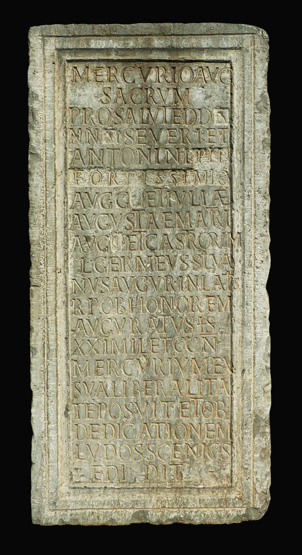 MERCVRIO AVG
SACRVM
PRO SALVTE DD
NN SEVERI ET
ANTONINI PII
FORTISSIMIQ
AVGG ET IVLIAE
AVGVSTAE MATRI
AVGG ET CASTRORVM
L GERMEVS SILVA
NVS AVGVR INLATA
R P OB HONOREM
AVGVRATVS HS
XXI MIL ET CVN
MERCVRIVM EX
SVA LIBERALITA
TE POSVIT ET OB
DEDICATIONEM
LVDOS SCENICOS
EDIDIT